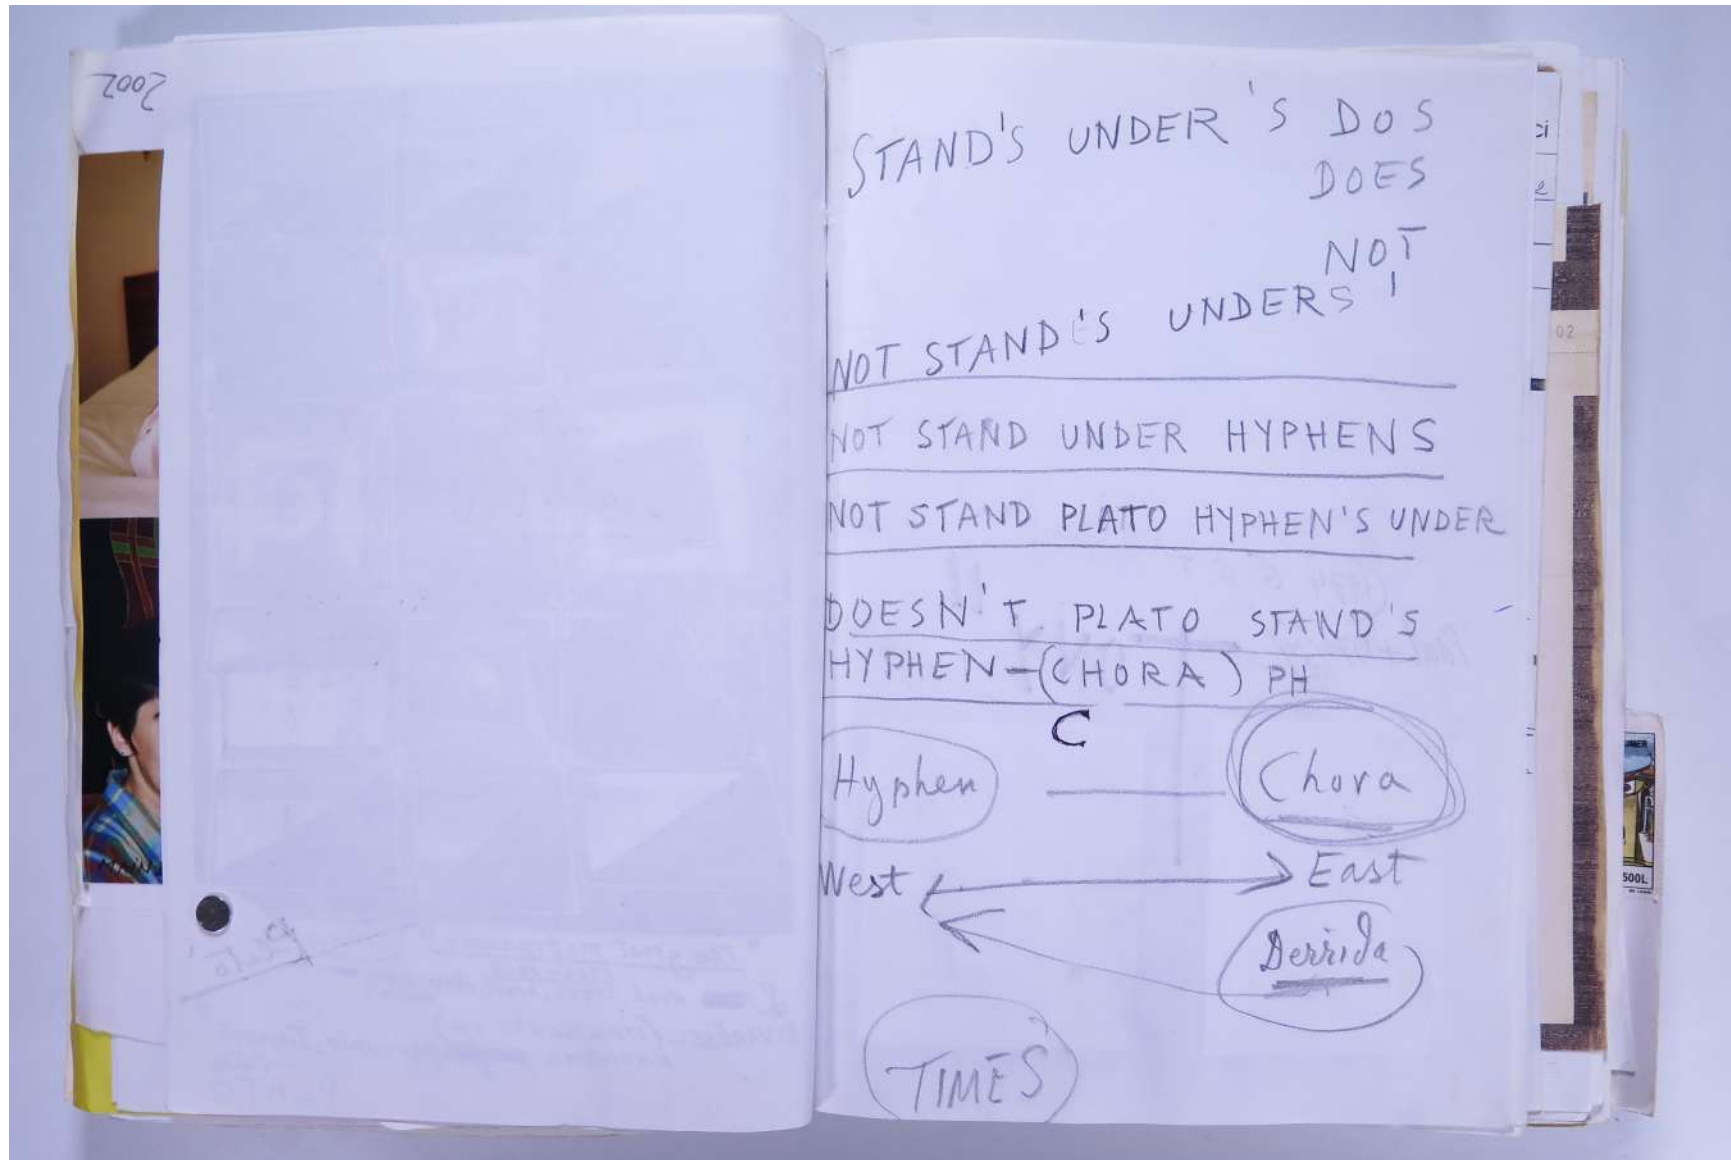 2002
STAND'S UNDER'S DOS
DOES
NOT
NOT STAND'S UNDERS'
NOT STAND UNDER HYPHENS
NOT STAND PLATO HYPHEN'S UNDER
DOESN'T PLATO STAND'S
HYPHEN-(CHORA) PH
C
Hyphen — Chora
West East
Derrida
TIMES
ci
e
02
500L
Plato